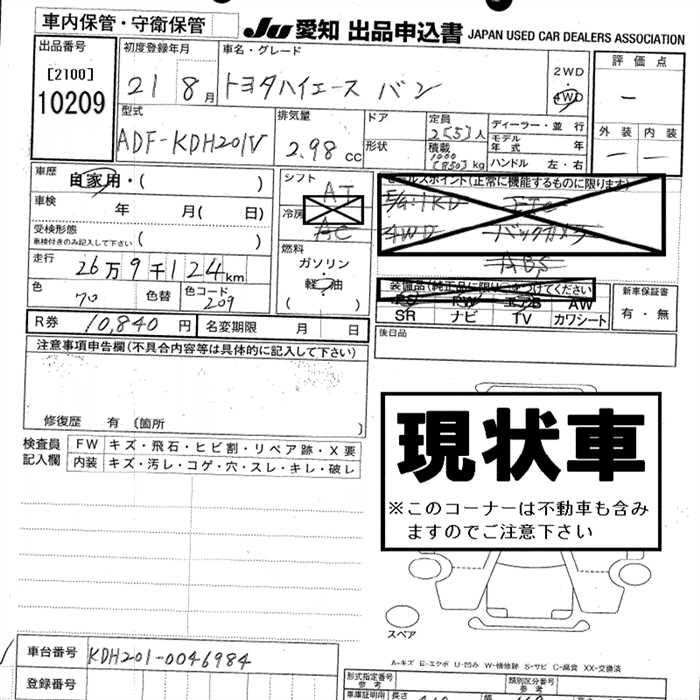 車内保管・守衛保管
JU 愛知 出品申込書 JAPAN USED CAR DEALERS ASSOCIATION
出品番号
[2100]
10209
初度登録年月
21 8月
車名・グレード
トヨタハイエース バン
2WD
4WD
評価点
ー
外装 内装
ー ー
型式
ADF-KDH201V
排気量
2.98 cc
ドア
形状
定員
2[5]人
積載
1000
[850]kg
ディーラー・並行
モデル年式 年
ハンドル 左・右
車歴
自家用・( )
車検 年 月( 日)
受検形態
車検付きのみ記入して下さい ( )
走行
26万9千124km
色
70
色替
色コード
209
シフト
AT
冷房
AC
燃料
ガソリン・
軽油
( )
セールスポイント(正常に機能するものに限ります)
4WD バックカメラ
ABS
装備品(純正品に限り○をつけてください)
PS PW エアB AW
SR ナビ TV カワシート
新車保証書
有・無
R券 10,840 円 名変期限 月 日
後日品
注意事項申告欄(不具合内容等は具体的に記入して下さい)
修復歴 有 〔箇所 〕
検査員記入欄
FW キズ・飛石・ヒビ割・リペア跡・X要
内装 キズ・汚レ・コゲ・穴・スレ・キレ・破レ
現状車
※このコーナーは不動車も含み
ますのでご注意下さい
スペア
A-キズ E-エクボ U-凹み W-補修跡 S-サビ C-腐食 XX-交換済
車台番号 KDH201-0046984
登録番号
形式指定番号
参考
類別区分番号
参考
車庫証明用
長さ